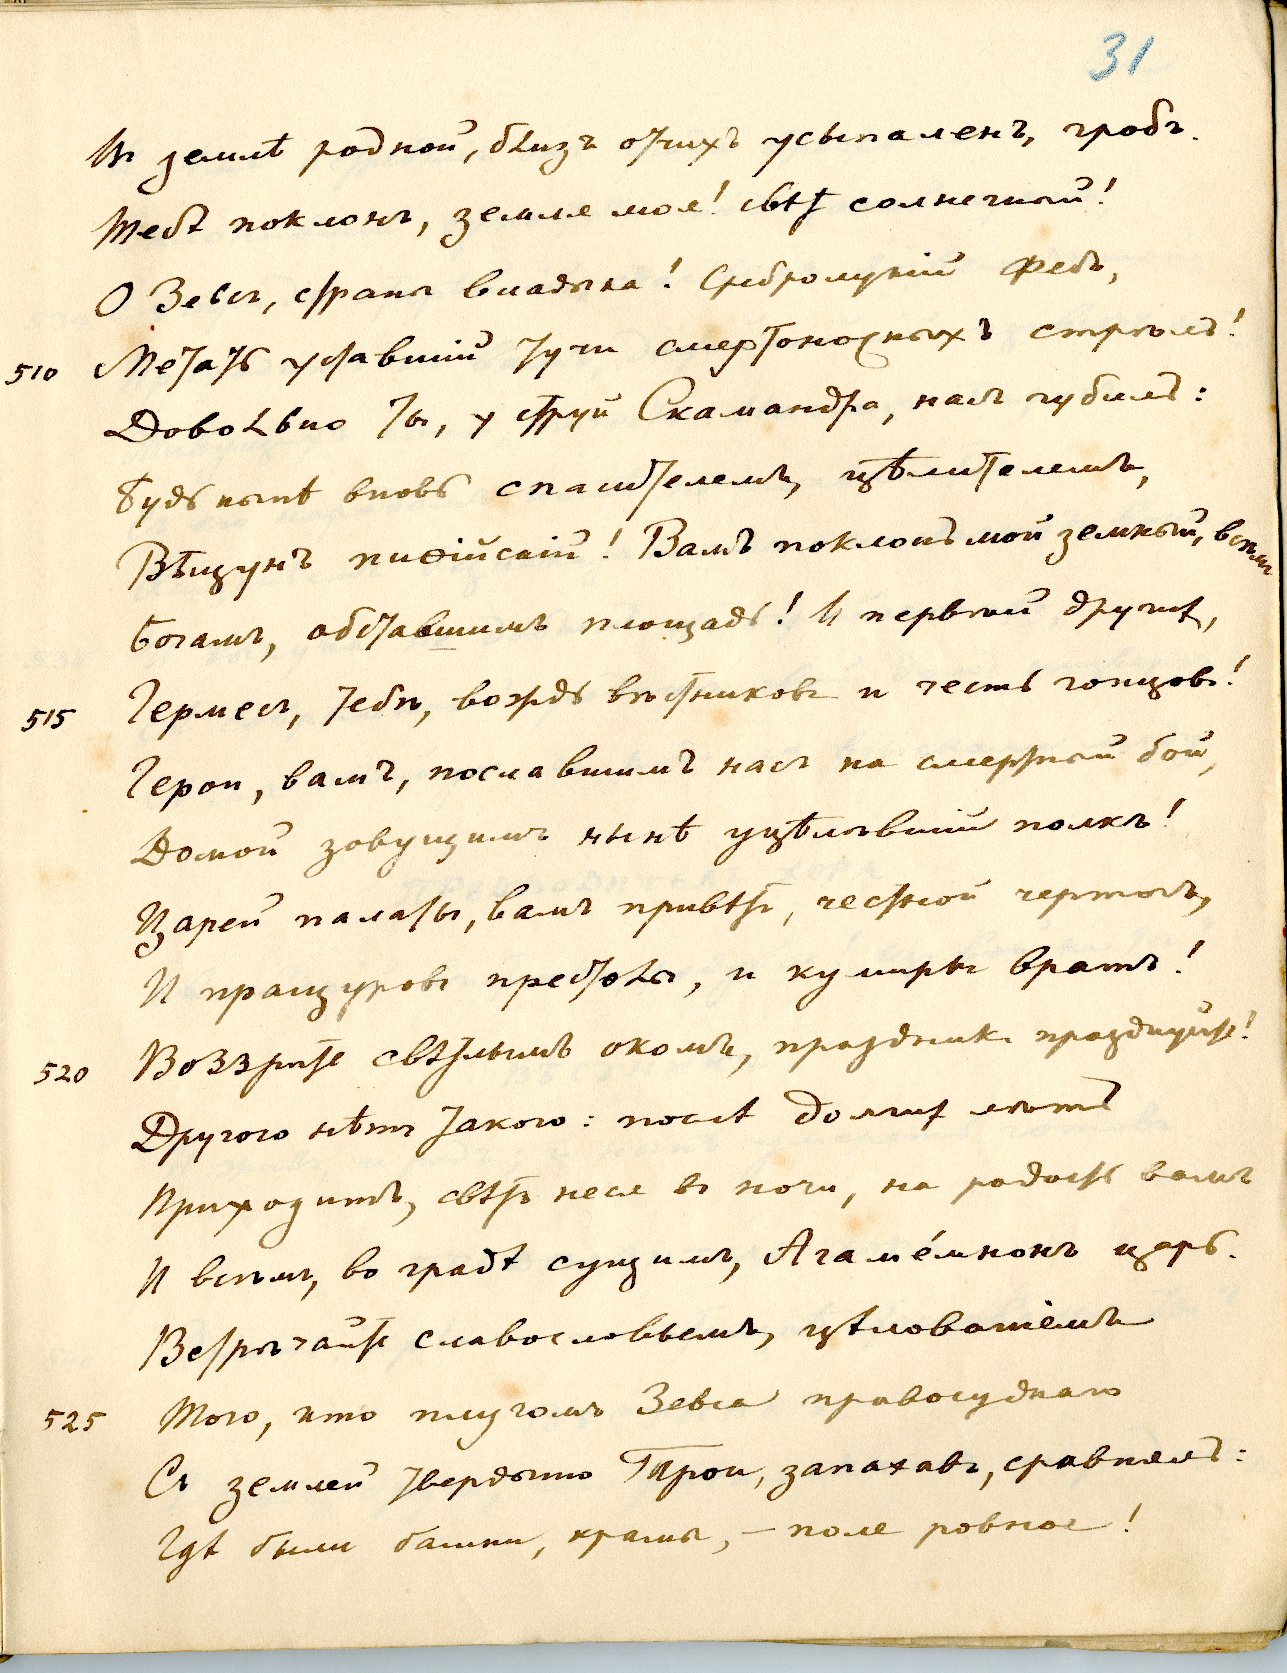 31
Въ землѣ родной, близъ отчихъ усыпаленъ, гробъ.
Тебѣ поклонъ, земля моя! свѣт солнечный!
О Зевсъ, страны владыка! Сребролукій Фебъ,
510 Метать уставшій тучи смертоносныхъ стрѣлъ!
Довольно ты, у струй Скамандра, насъ губилъ:
Будь нынѣ вновь спасителемъ, цѣлителемъ,
Вѣщунъ пиѳійскій! Вамъ поклонъ мой земный, всѣмъ
Богамъ, обставшимъ площадь! И первый други,
515 Гермесъ, тебѣ, вождь вѣстниковъ и честь гонцовъ!
Герои, вамъ, пославшимъ насъ на смертный бой,
Домой зовущимъ нынѣ уцѣлѣвшій полкъ!
Царей палаты, вамъ привѣтъ, честной чертогъ,
И пращуровъ престолы, и кумиры вратъ!
520 Воззрите свѣтлымъ окомъ, праздникъ празднуйте!
Другого нѣтъ такого: послѣ долгихъ лѣтъ
Приходитъ, свѣтъ неся въ ночи, на радость вамъ
И всѣмъ, во градѣ сущимъ, Агаме́мнонъ царь.
Встрѣчайте славословьемъ, цѣлованіемъ
525 Того, кто плугомъ Зевса правосуднаго
Съ землей твердыню Трои, запахавъ, сравнялъ:
Гдѣ были башни, храмы, – поле ровное!